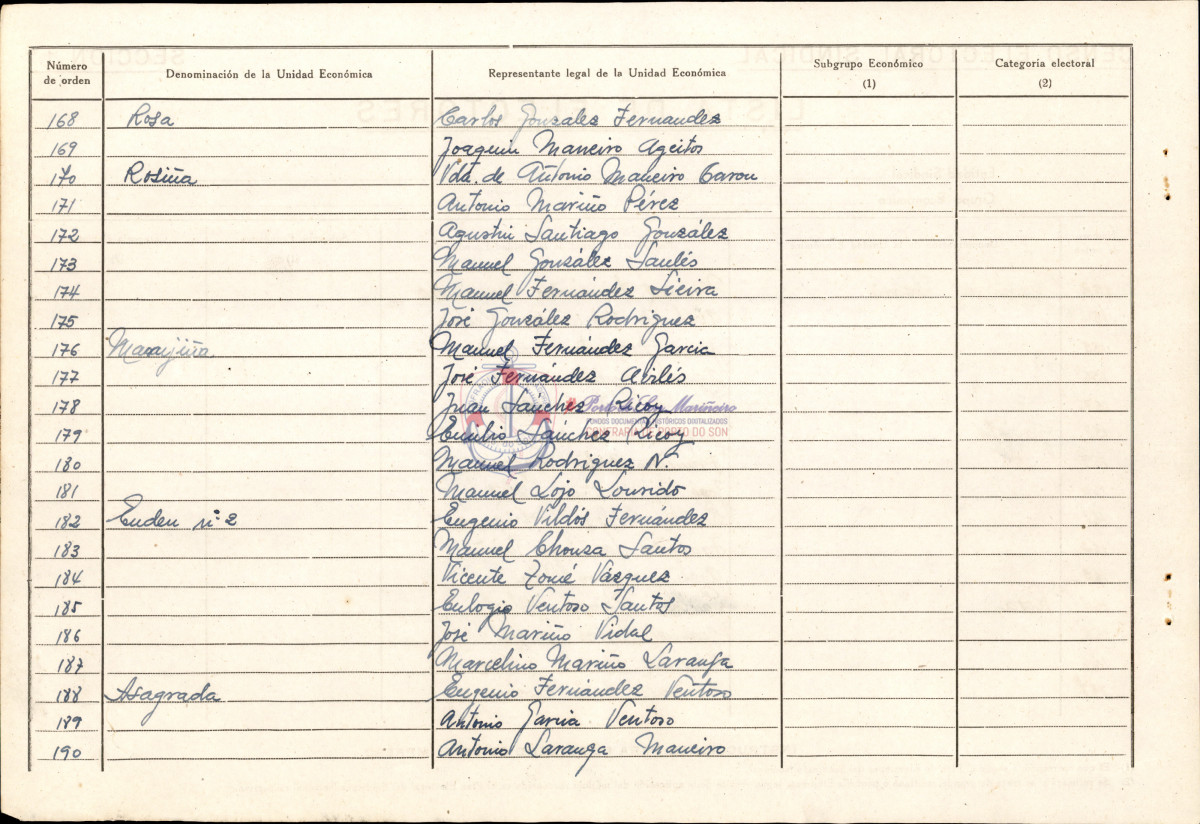 Número de orden Denominación de la Unidad Económica Representante legal de la Unidad Económica Subgrupo Económico (1) Categoria electoral (2)
168 Rosa Carlos Gonzalez Fernandez
169 Joaquin Maneiro Ageitos
170 Rosiña Vda. de Antonio Maneiro
171 Antonio Mariño Pérez
172 Agustin Santiago González
173 Manuel González Saulés
174 Manuel Fernández Sieira
175 José González Rodriguez
176 Manuel Fernández Garcia
177 José Fernández Avilés
178 Juan Sanchez Ricoy
179 Emilio Sánchez Ricoy
180 Manuel Rodriguez N.
181 Manuel Lojo Lourido
182 nº 2 Eugenio Vildós Fernández
183 Manuel Chouza Santos
184 Vicente Tomé Vázquez
185 Eulogio Ventoso Santos
186 José Mariño Vidal
187 Marcelino Mariño Laranga
188 Asagrada Eugenio Fernández Ventoso
189 Antonio Garcia Ventoso
190 Antonio Laranga Maneiro
FONDOS DOCUMENTAIS HISTÓRICOS DIXITALIZADOS